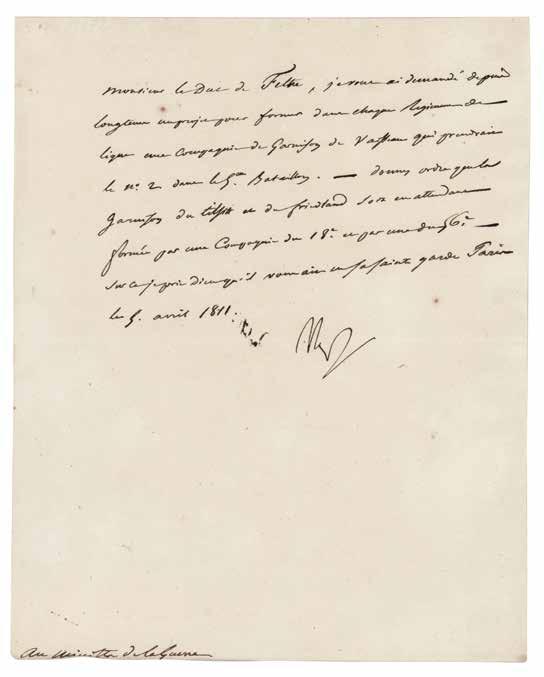 Monsieur le Duc de Feltre, je vous ai demandé depuis
longtems un projet pour former dans chaque Régiment de
ligne une Compagnie de Garnison de Vaisseau qui prendrait
le n.° 2 dans le 5.me Bataillon. — donnez ordre que les
Garnison du tilsit et du friedland soit en attendant
formée par une Compagnie du 18.e et par une du 56.e —
sur ce je prie dieu qu'il vous ait en sa sainte garde Paris
le 5. avril 1811.
Au Ministre de la Guerre